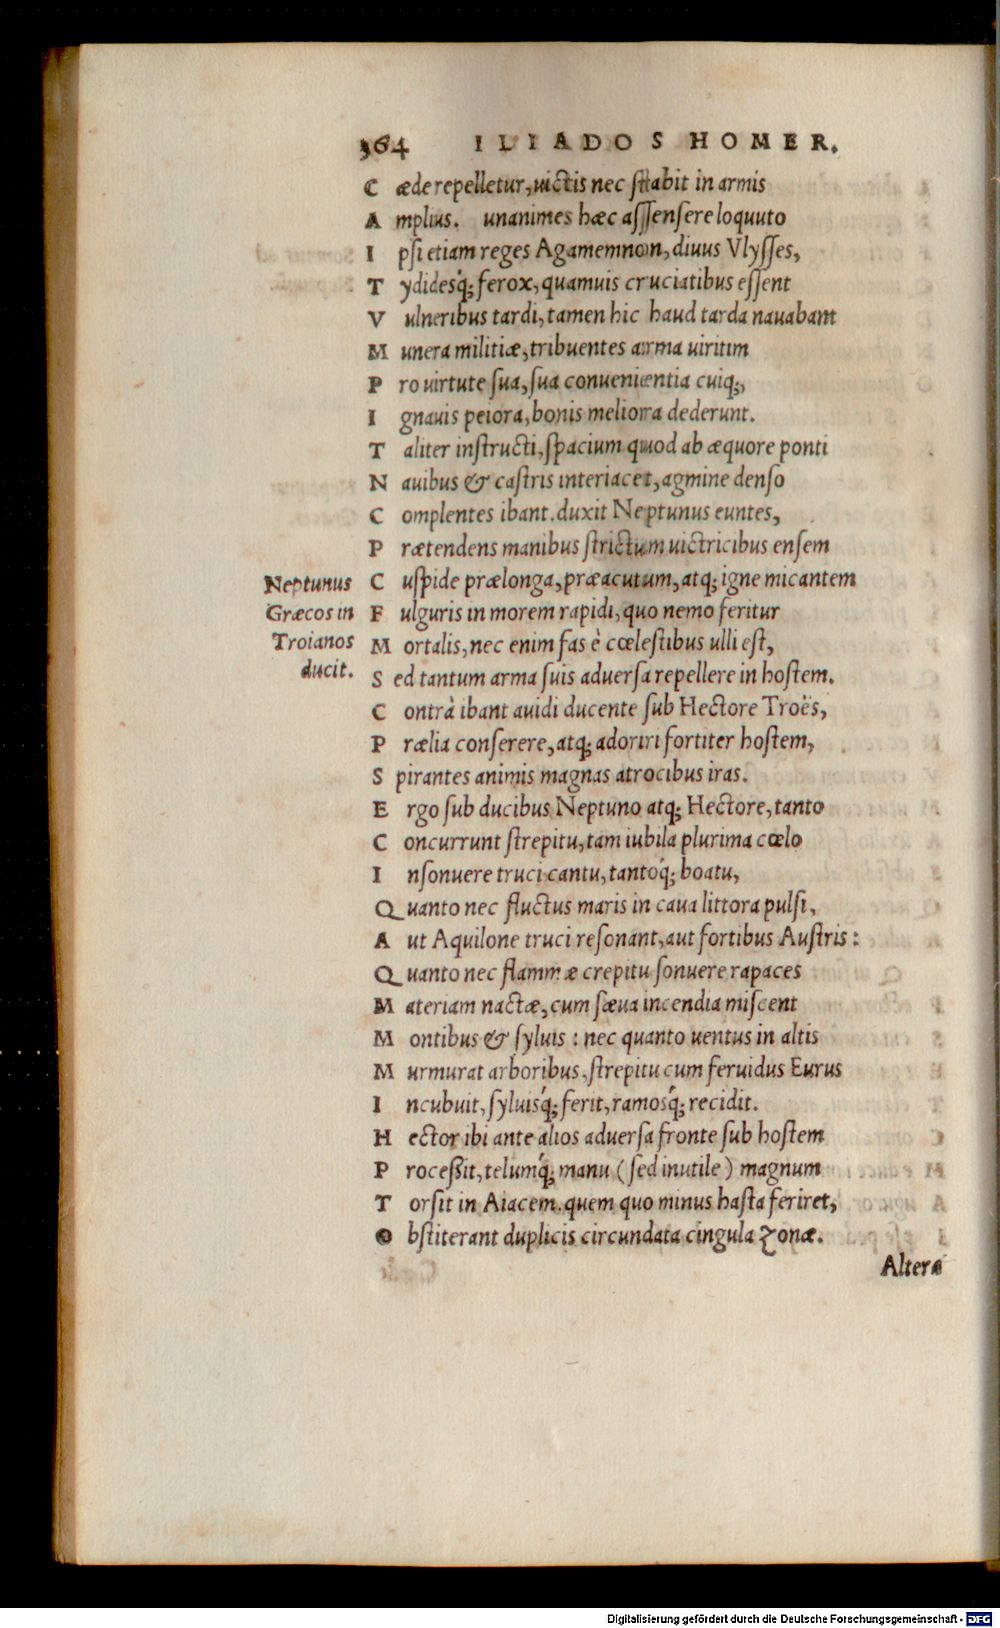 364 ILIADOS HOMER.
Cæde repelletur, uictis nec stabit in armis
Amplius. unanimes hæc assensere loquuto
Ipsi etiam reges Agamemnon, diuus Vlysses,
Tydidesq́; ferox, quamuis cruciatibus essent
Vulneribus tardi, tamen hic haud tarda nauabant
Munera militiæ, tribuentes arma uiritim
Pro uirtute sua, sua conuenientia cuiq;,
Ignauis peiora, bonis meliora dederunt.
Taliter instructi, spacium quod ab æquore ponti
Nauibus & castris interiacet, agmine denso
Complentes ibant. duxit Neptunus euntes,
Prætendens manibus strictum uictricibus ensem
Cuspide prælonga, præacutum, atq; igne micantem
Fulguris in morem rapidi, quo nemo feritur
Mortalis, nec enim fas è cœlestibus ulli est,
Sed tantum arma suis aduersa repellere in hostem.
Neptunus
Græcos in
Troianos
ducit.
Contrà ibant auidi ducente sub Hectore Troës,
Prælia conserere, atq; adoriri fortiter hostem,
Spirantes animis magnas atrocibus iras.
Ergo sub ducibus Neptuno atq; Hectore, tanto
Concurrunt strepitu, tam iubila plurima cœlo
Insonuere truci cantu, tantoq́; boatu,
Quanto nec fluctus maris in caua littora pulsi,
Aut Aquilone truci resonant, aut fortibus Austris:
Quanto nec flammæ crepitu sonuere rapaces
Materiam nactæ, cum sæua incendia miscent
Montibus & syluis: nec quanto uentus in altis
Murmurat arboribus, strepitu cum feruidus Eurus
Incubuit, syluisq́; ferit, ramosq́; recidit.
Hector ibi ante alios aduersa fronte sub hostem
Processit, telumq́; manu (sed inutile) magnum
Torsit in Aiacem. quem quo minus hasta feriret,
Obstiterant duplicis circundata cingula zonæ.
Altera
Digitalisierung gefördert durch die Deutsche Forschungsgemeinschaft - DFG